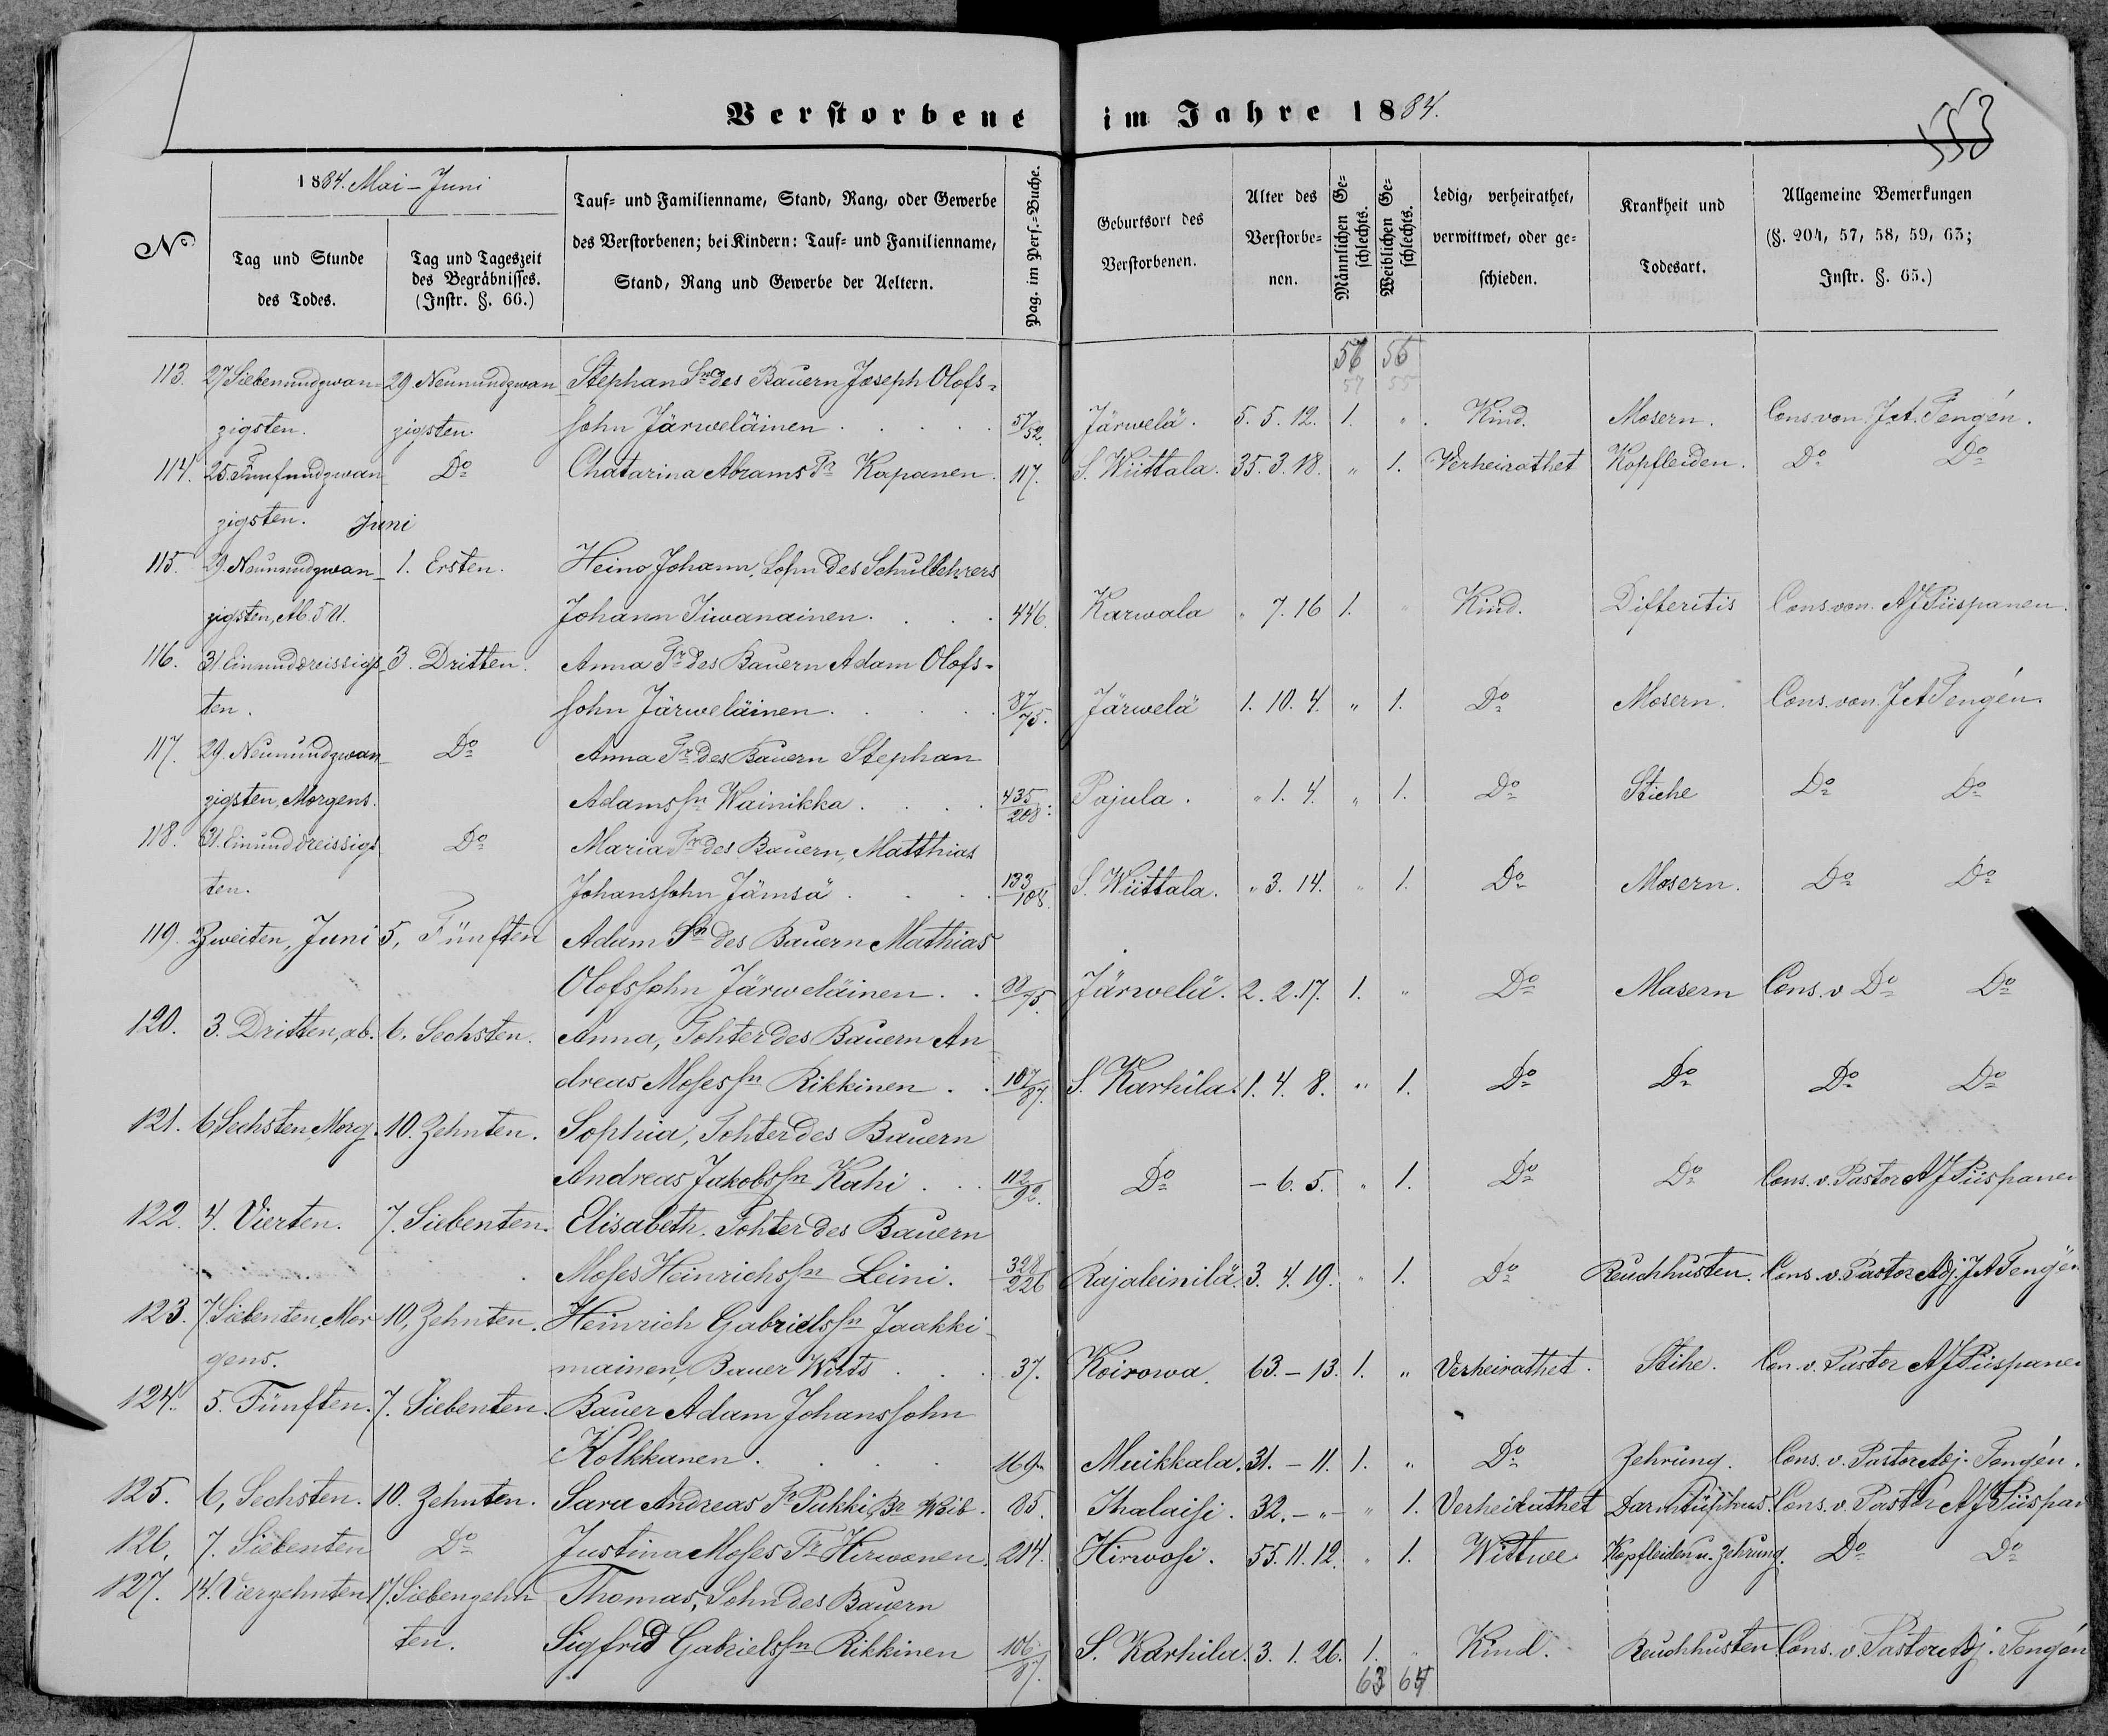 Verstorbene im Jahre 1884.
553
1884. Mai – Juni
No
Tag und Stunde des Todes.
Tag und Tageszeit des Begräbnisses. (Instr. §. 66.)
Tauf- und Familienname, Stand, Rang, oder Gewerbe
des Verstorbenen; bei Kindern: Tauf- und Familienname,
Stand, Rang und Gewerbe der Aeltern.
Pag. im Pers.-Buche.
Geburtsort des Verstorbenen.
Alter des Verstorbe-nen.
Männlichen Ge-schlechts.
Weiblichen Ge-schlechts.
Ledig, verheirathet, verwittwet, oder ge-schieden.
Krankheit und Todesart.
Allgemeine Bemerkungen
(§. 204, 57, 58, 59, 63;
Instr. §. 65.)
56 56
57 55
113. 27 Siebenundzwan- 29. Neunundzwan Stephan Sn des Bauern Joseph Olofs-
zigsten. zigsten. sohn Järweläinen 57/52. Järwelä. 5. 5. 12. 1. " Kind. Masern. Cons von J. A. Tengén.
114. 25. Fünfundzwan Do Chatarina Abrams Tr Kapanen. 117. S. Wiittala. 35. 3. 18. " 1. Verheirathet Kopfleiden. Do Do
zigsten. Juni
115. 29. Neunundzwan- 1. Ersten. Heino Johann, Sohn des Schullehrers
zigsten, Ab. 5 U. Johann Jiwanainen. 446. Karwala " 7. 16 1. " Kind. Difteritis Cons von. A J Piispanen.
116. 31 Einunddreissigs- 3. Dritten. Anna Tr des Bauern Adam Olofs-
ten. sohn Järweläinen. 87/75. Järwelä 1. 10. 4. " 1. Do Masern. Cons. von. J A Tengén.
117. 29. Neunundzwan Do Anna Tr des Bauern Stephan
zigsten, Morgens. Adamssn Wainikka. 435/208. Pajula. " 1. 4. " 1. Do Stiche Do Do
118. 31. Einunddreissigs Do Maria Tr des Bauern, Matthias
ten. Johanssohn Jämsä 133/108. S. Wiittala. " 3. 14. " 1. Do Masern. Do Do
119. 2 Zweiten, Juni 5, Fünften Adam Sn des Bauern Mathias
Olofssohn Järweläinen. 88/75. Järwelä. 2. 2. 17. 1. " Do Masern Cons. v Do Do
120. 3. Dritten, ab. 6. Sechsten. Anna, Tohter des Bauern An
dreas Mosessn Rikkinen. 107/87. S. Karhila. 1. 4. 8. " 1. Do Do Do Do
121. 6 Sechsten Morg. 10. Zehnten. Sophia, Tohter des Bauern
Andreas Jakobssn Kahi. 112/92. Do – 6. 5. " 1. Do Do Cons. v. Pastor A J Piispanen
122. 4. Vierten. 7. Siebenten. Elisabeth. Tohter des Bauern
Moses Heinrichssn Leini. 328/226 Rajaleinilä. 3. 4. 19. " 1. Do Keuchhusten. Cons. v. Pastor Adj. J A Tengén
123. 7. Siebenten, Mor 10, Zehnten. Heinrich Gabrielssn Jaakki-
gens. mainen, Bauer Wirts 37. Koirowa. 63. – 13. 1. " Verheirathet. Stihe. Con. v. Pastor A J Piispanen
124. 5. Fünften. 7. Siebenten. Bauer Adam Johanssohn
Kolkkanen. 169. Muikkala. 31. – 11. 1. " Do Zehrung. Cons. v. Pastor Adj. Tengén.
125. 6, Sechsten. 10. Zehnten. Sara Andreas Tr Pukki, Br Weib. 85. Ihalaisi. 32. – " – " 1. Verheirathet Darmtüphus. Cons. v. Pastor A J Piispan
126. 7. Siebenten Do Justina Moses Tr Hirwonen. 214. Hirwosi. 55. 11. 12. " 1. Wittwe Kopfleiden u. Zehrung. Do Do
127. 14. Vierzehnten 17. Siebenzehn Thomas, Sohn des Bauern
ten. Sigfrid Gabrielssn Rikkinen 106/87. S. Karhila. 3. 1. 26. 1. " Kind. Keuchhusten Cons. v. Pastor Adj. Tengén
63 64